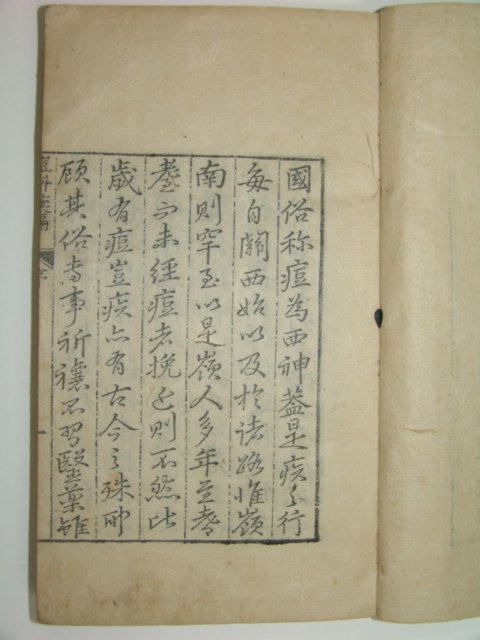 國俗称痘為西神蓋是疾之行
每自關西始以及於諸路惟嶺
南則罕至以是嶺人多年至耆
耋而未經痘者挽近則不然比
歲有痘豈疾亦有古今之殊耶
顧其俗専事祈禳不習醫藥雖
一